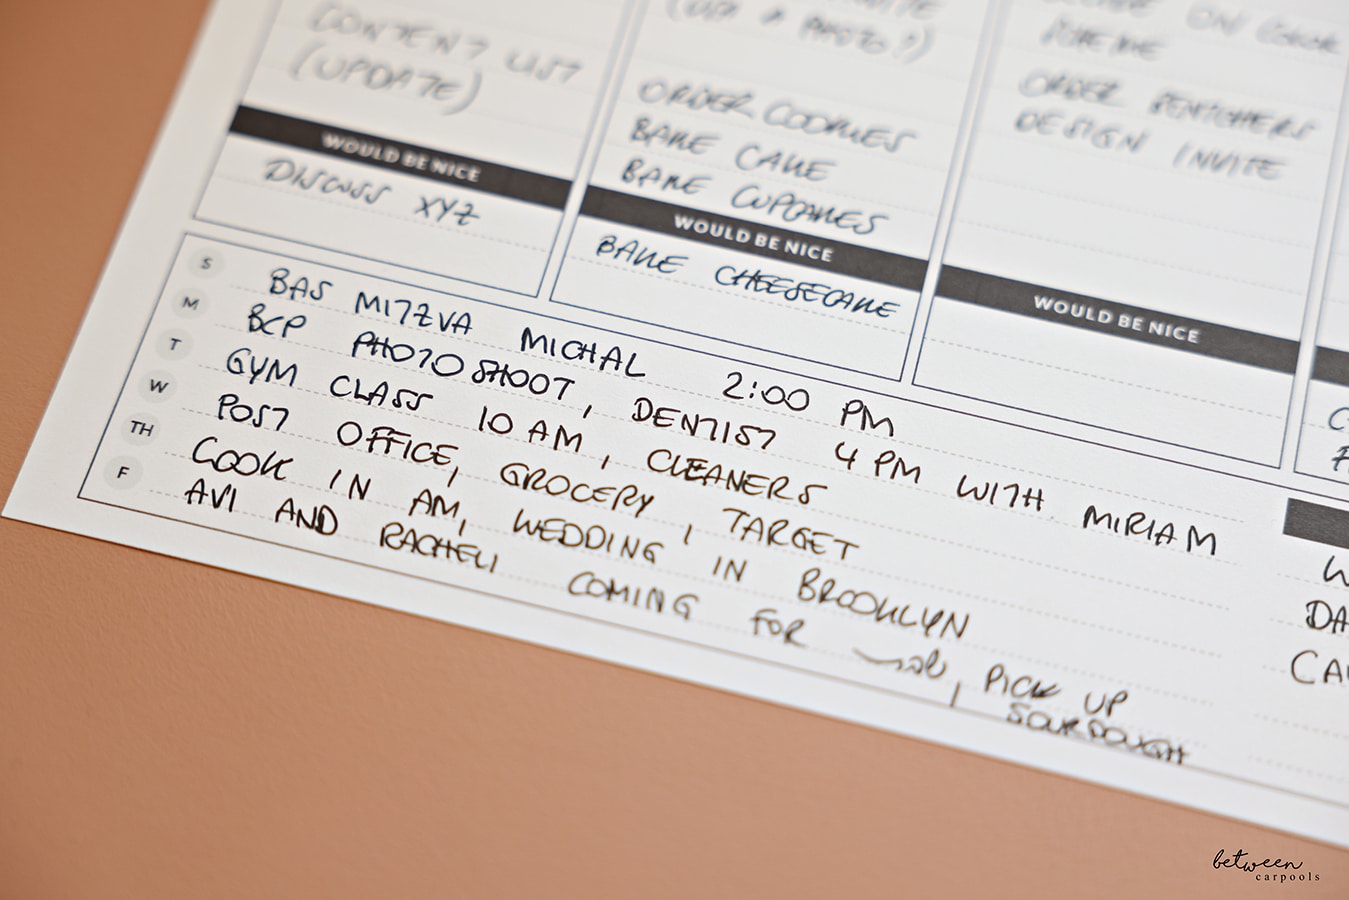 CONTENT LIST
(UPDATE)
WOULD BE NICE
DISCUSS XYZ
A PHOTO?)
ORDER COOKIES
BAKE CAKE
BAKE CUPCAKES
WOULD BE NICE
BAKE CHEESECAKE
ON COLOR
SCHEME
ORDER BENTCHERS
DESIGN INVITE
WOULD BE NICE
S BAS MITZVA MICHAL 2:00 PM
M BCP PHOTOSHOOT, DENTIST 4 PM WITH MIRIAM
T GYM CLASS 10 AM, CLEANERS
W POST OFFICE, GROCERY, TARGET
TH COOK IN AM, WEDDING IN BROOKLYN
F AVI AND RACHELI COMING FOR שבת, PICK UP
SOURDOUGH
W
DA
CA
between
carpools